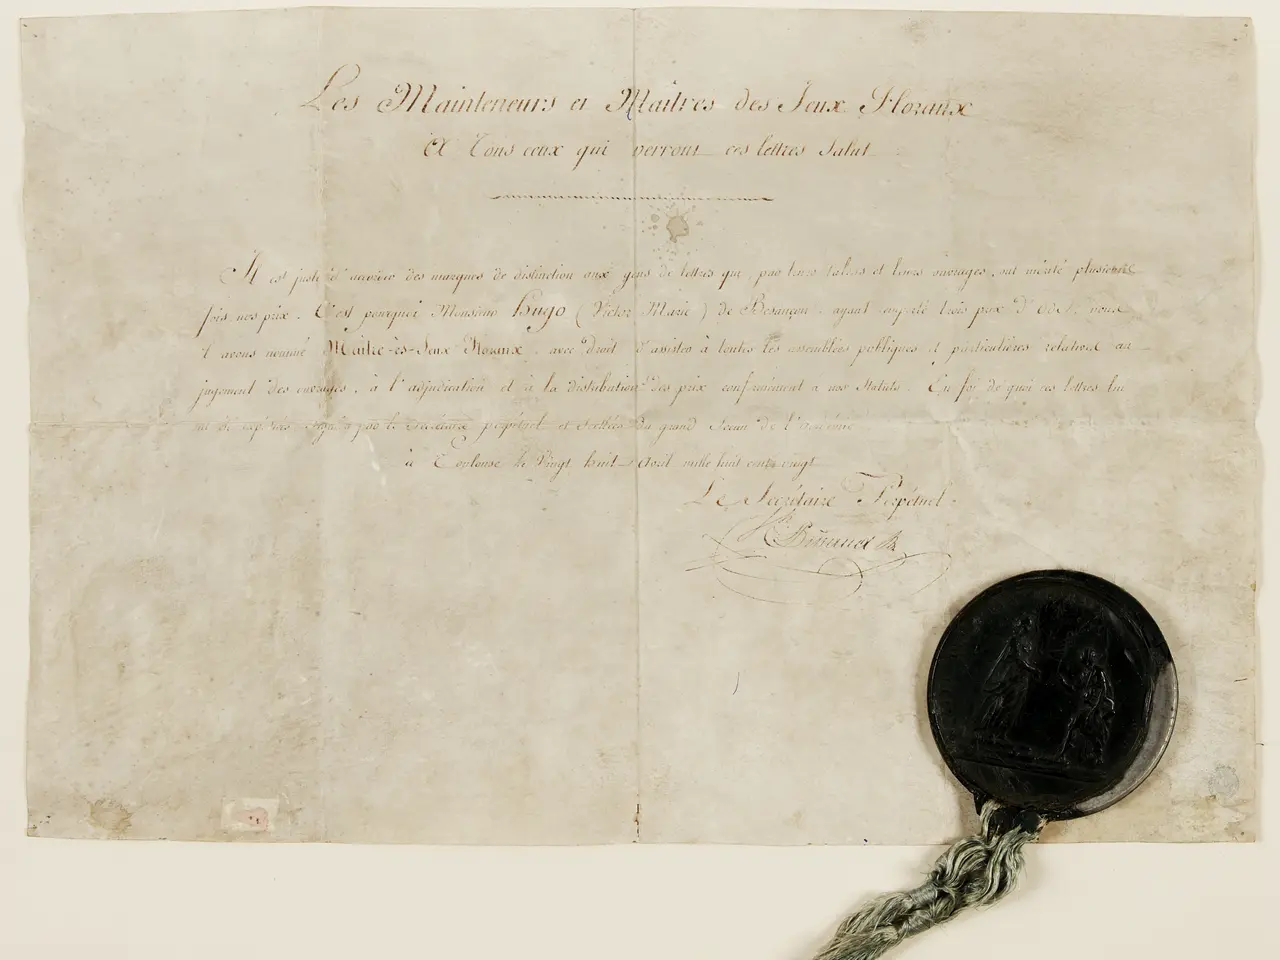 Les Mainteneurs et Maitres des Jeux Floraux
A Tous ceux qui verront ces lettres Salut
Il est juste d'accorder des marques de distinction aux gens de lettres qui, par leurs talens et leurs ouvrages, ont mérité plusieurs
fois nos prix. C'est pourquoi Monsieur Hugo (Victor Marie) de Besançon, ayant remporté trois prix d'ode, nous
l'avons nommé Maitre-ès-Jeux Floraux, avec droit d'assister à toutes les assemblées publiques et particulières relatives au
jugement des ouvrages, à l'adjudication et à la distribution des prix conformément à nos Statuts. En foi de quoi ces lettres lui
ont été expédiées signées par le Secrétaire perpétuel et scellées du grand Sceau de l'académie
à Toulouse le Vingt huit Avril mille huit cent vingt
Le Secrétaire Perpétuel.